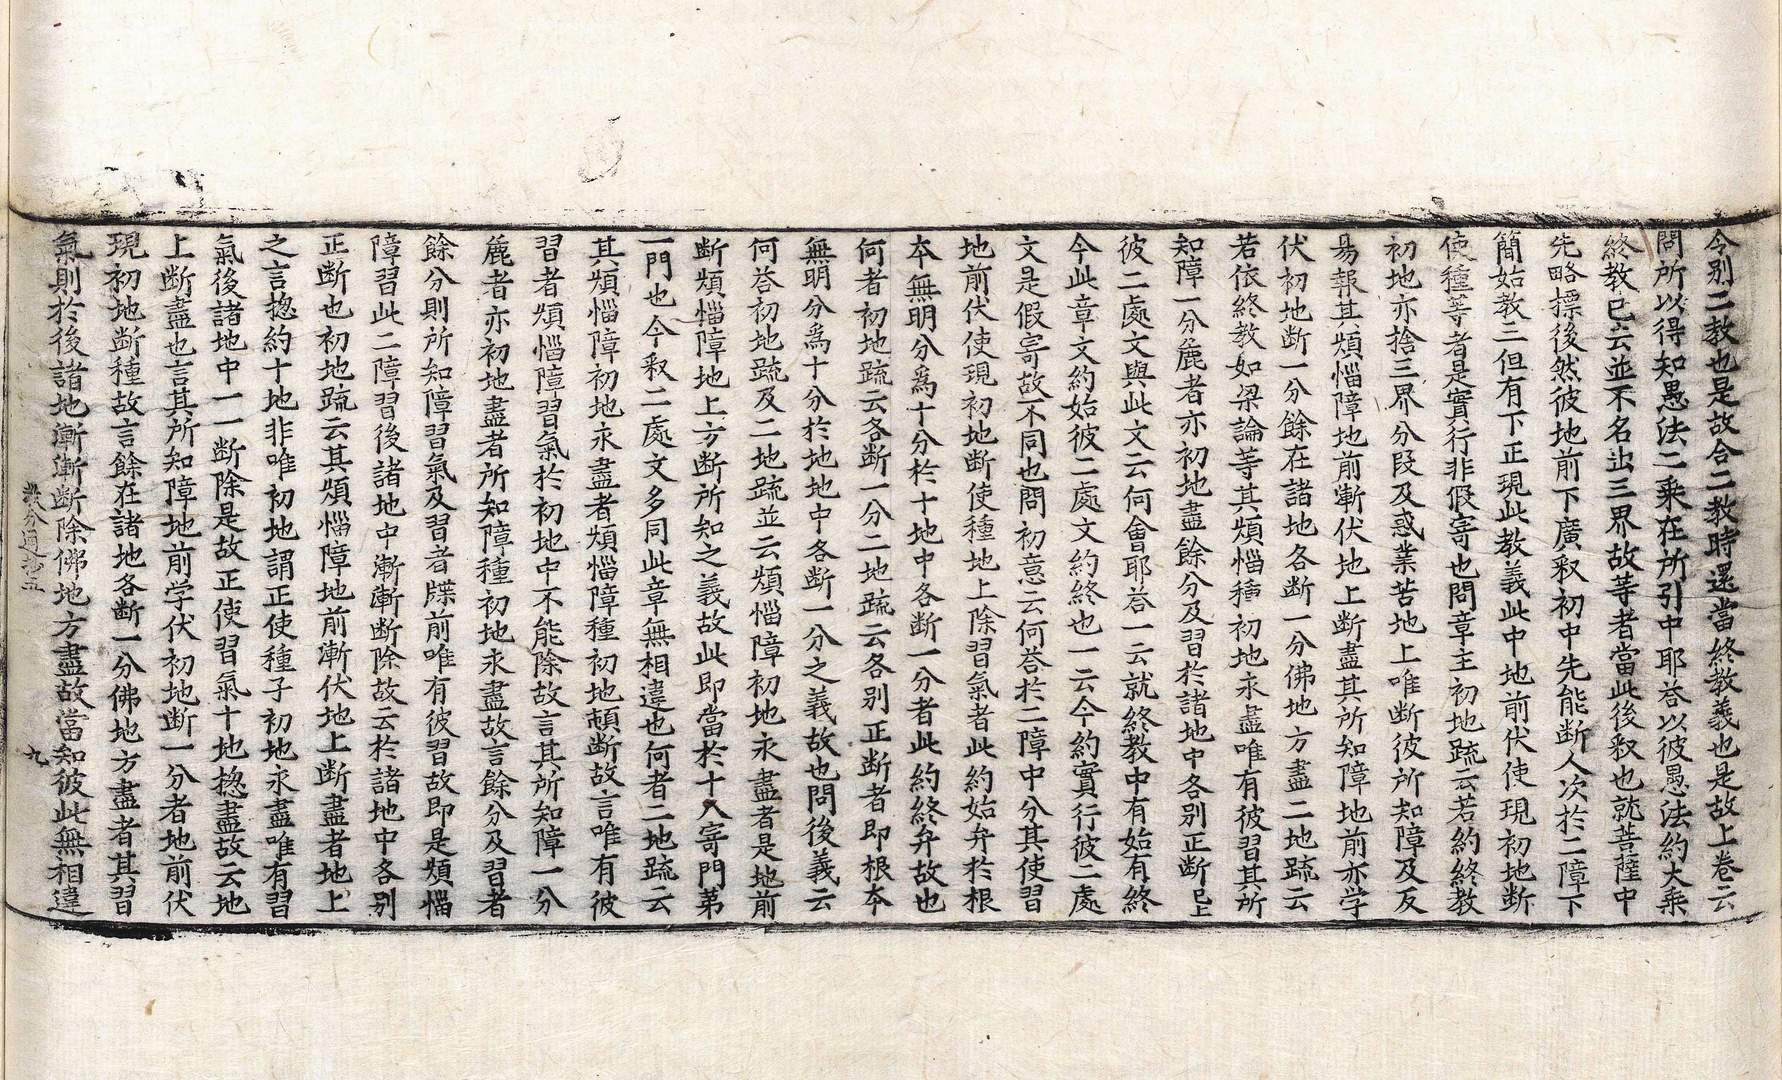 今別二教也是故合二教時還當終教義也是故上卷云
問所以得知愚法二乘在所引中耶荅以彼愚法約大乘
終教已去並不名出三界故等者當此後釈也就菩薩中
先略摽後然彼地前下廣釈初中先能断人次於二障下
簡始教三但有下正現此教義此中地前伏使現初地断
使種等者是實行非假寄也問章主初地䟽云若約終教
初地亦捨三界分段及惑業苦地上唯断彼所知障及反
易報其煩惱障地前漸伏地上断盡其所知障地前亦学
伏初地断一分餘在諸地各断一分佛地方盡二地䟽云
若依終教如梁論等其煩惱種初地永盡唯有彼習其所
知障一分麁者亦初地盡餘分及習於諸地中各別正断已上
彼二處文與此文云何會耶荅一云就終教中有始有終
今此章文約始彼二處文約終也一云今約實行彼二處
文是假寄故不同也問初意云何荅於二障中分其使習
地前伏使現初地断使種地上除習氣者此約始弁於根
本無明分爲十分於十地中各断一分者此約終弁故也
何者初地䟽云各断一分二地䟽云各別正断者即根本
無明分爲十分於地地中各断一分之義故也問後義云
何荅初地䟽及二地䟽並云煩惱障初地永盡者是地前
断煩惱障地上方断所知之義故此即當於十入寄門第
一門也今釈二處文多同此章無相違也何者二地䟽云
其煩惱障初地永盡者煩惱障種初地頓断故言唯有彼
習者煩惱障習氣於初地中不能除故言其所知障一分
麁者亦初地盡者所知障種初地永盡故言餘分及習者
餘分則所知障習氣及習者牒前唯有彼習故即是煩惱
障習此二障習後諸地中漸漸断除故云於諸地中各別
正断也初地䟽云其煩惱障地前漸伏地上断盡者地上
之言揔約十地非唯初地謂正使種子初地永盡唯有習
氣後諸地中一一断除是故正使習氣十地揔盡故云地
上断盡也言其所知障地前学伏初地断一分者地前伏
現初地断種故言餘在諸地各断一分佛地方盡者其習
氣則於後諸地漸漸断除佛地方盡故當知彼此無相違
教分通抄五　九